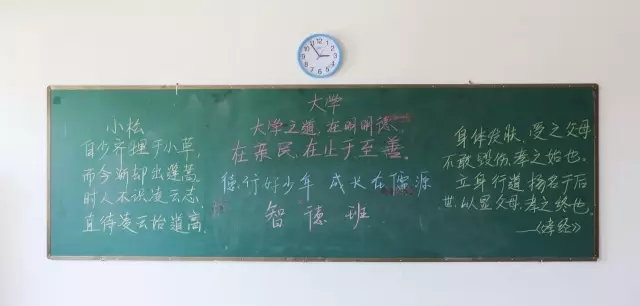 小松
自少齐埋于小草，
而今渐却出蓬蒿。
时人不识凌云志，
直待凌云始道高。
大学
大学之道，在明明德，
在亲民，在止于至善。
德行好少年 成长在儒源
智德班
身体发肤，受之父母
不敢毁伤，孝之始也。
立身行道，扬名于后
世，以显父母，孝之终也。
——《孝经》